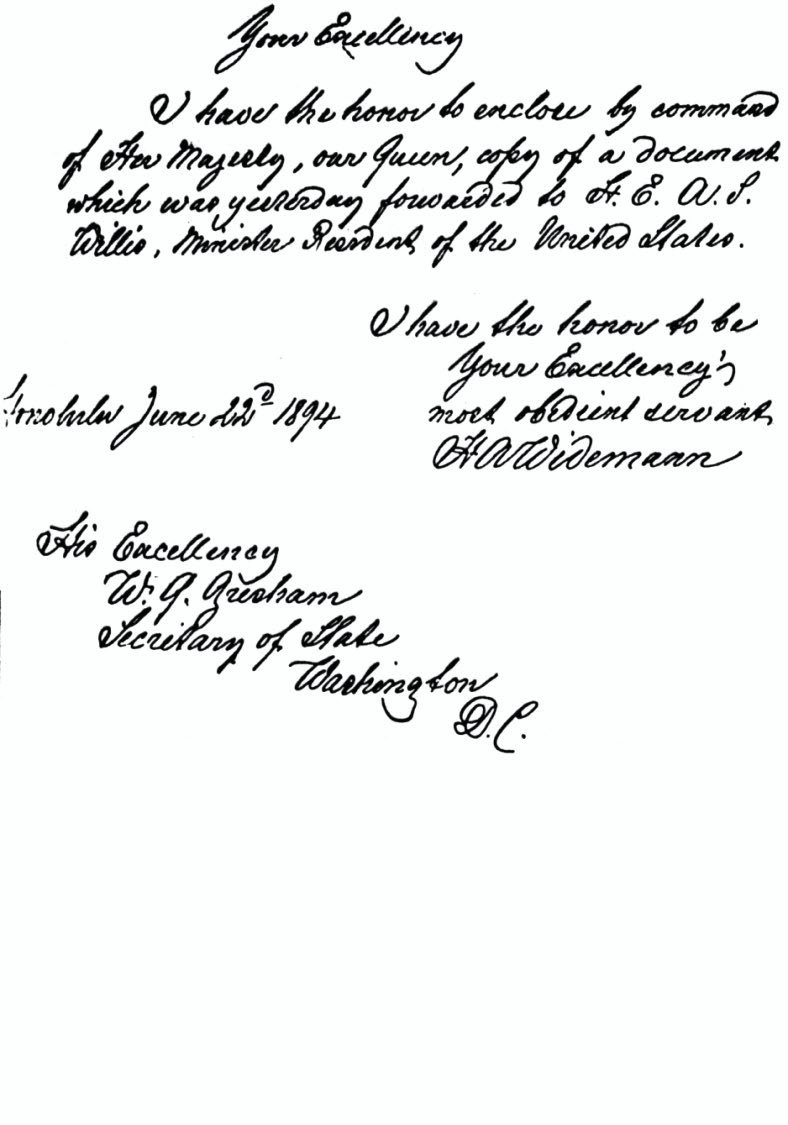 Your Excellency
I have the honor to enclose by command
of Her Majesty, our Queen, copy of a document
which was yesterday forwarded to H. E. A. S.
Willis, Minister Resident of the United States.
I have the honor to be
Your Excellency's
most obedient servant
Honolulu June 22d 1894
H A Widemann
His Excellency
W. Q. Gresham
Secretary of State
Washington
D. C.